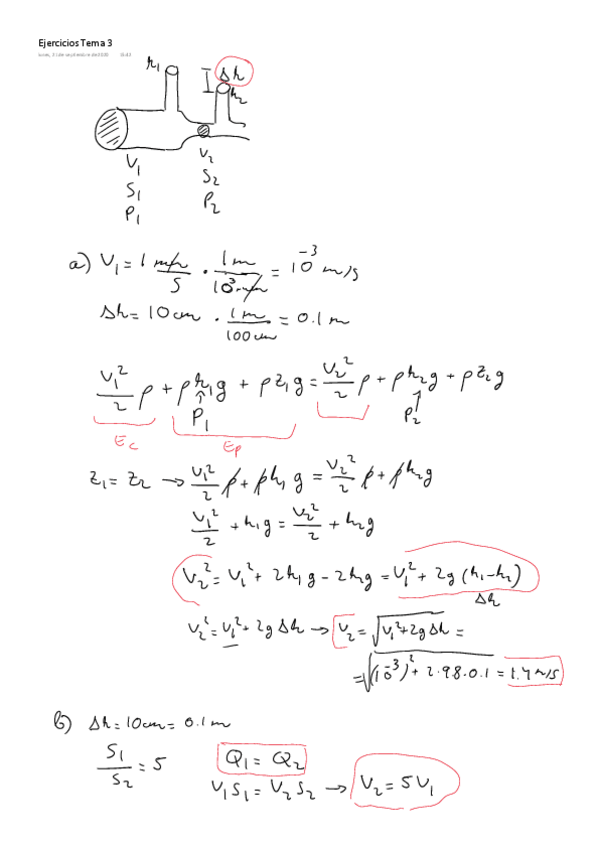 Ejercicios Tema 3
h₁
Δh
h₂
V₁
S₁
P₁
V₂
S₂
P₂
a) V₁ = 1 mm/s · 1 m/10³ mm = 10⁻³ m/s
Δh = 10 cm · 1 m/100 cm = 0.1 m
V₁²/2 ρ + ρh₁g + ρz₁g = V₂²/2 ρ + ρh₂g + ρz₂g
P₁
P₂
Ec
Ep
z₁ = z₂ → V₁²/2 ρ + ρh₁g = V₂²/2 ρ + ρh₂g
V₁²/2 + h₁g = V₂²/2 + h₂g
V₂² = V₁² + 2h₁g - 2h₂g = V₁² + 2g(h₁-h₂)
Δh
V₂² = V₁² + 2gΔh → V₂ = √(V₁²+2gΔh) =
= √((10⁻³)² + 2·9.8·0.1) = 1.4 m/s
b) Δh = 10cm = 0.1 m
S₁/S₂ = 5
Q₁ = Q₂
V₁S₁ = V₂S₂ → V₂ = 5V₁